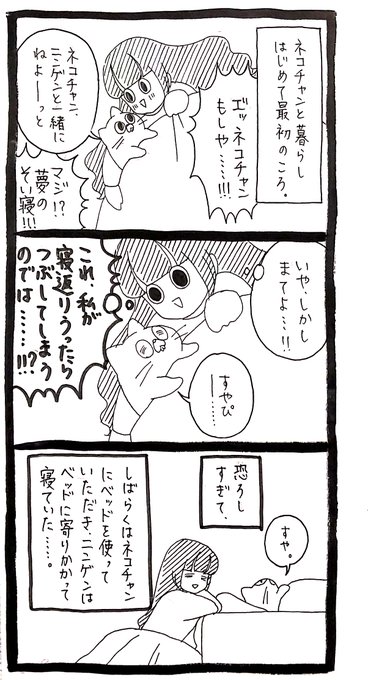 ネコチャンと暮らし
はじめて最初のころ。
エッ、ネコチャン
もしや……!!!
ネコチャン、
ニンゲンと一緒に
ねよーーっと
マジ!?
夢の
そい寝!!!
いや、しかし
まてよ…!!
これ、私が
寝返りうったら
つぶしてしまう
のでは……!!!?
すやぴ
――……
恐ろし
すぎて、
すや。
しばらくはネコチャン
にベッドを使って
いただき、ニンゲンは
ベッドに寄りかかって
寝ていた……。